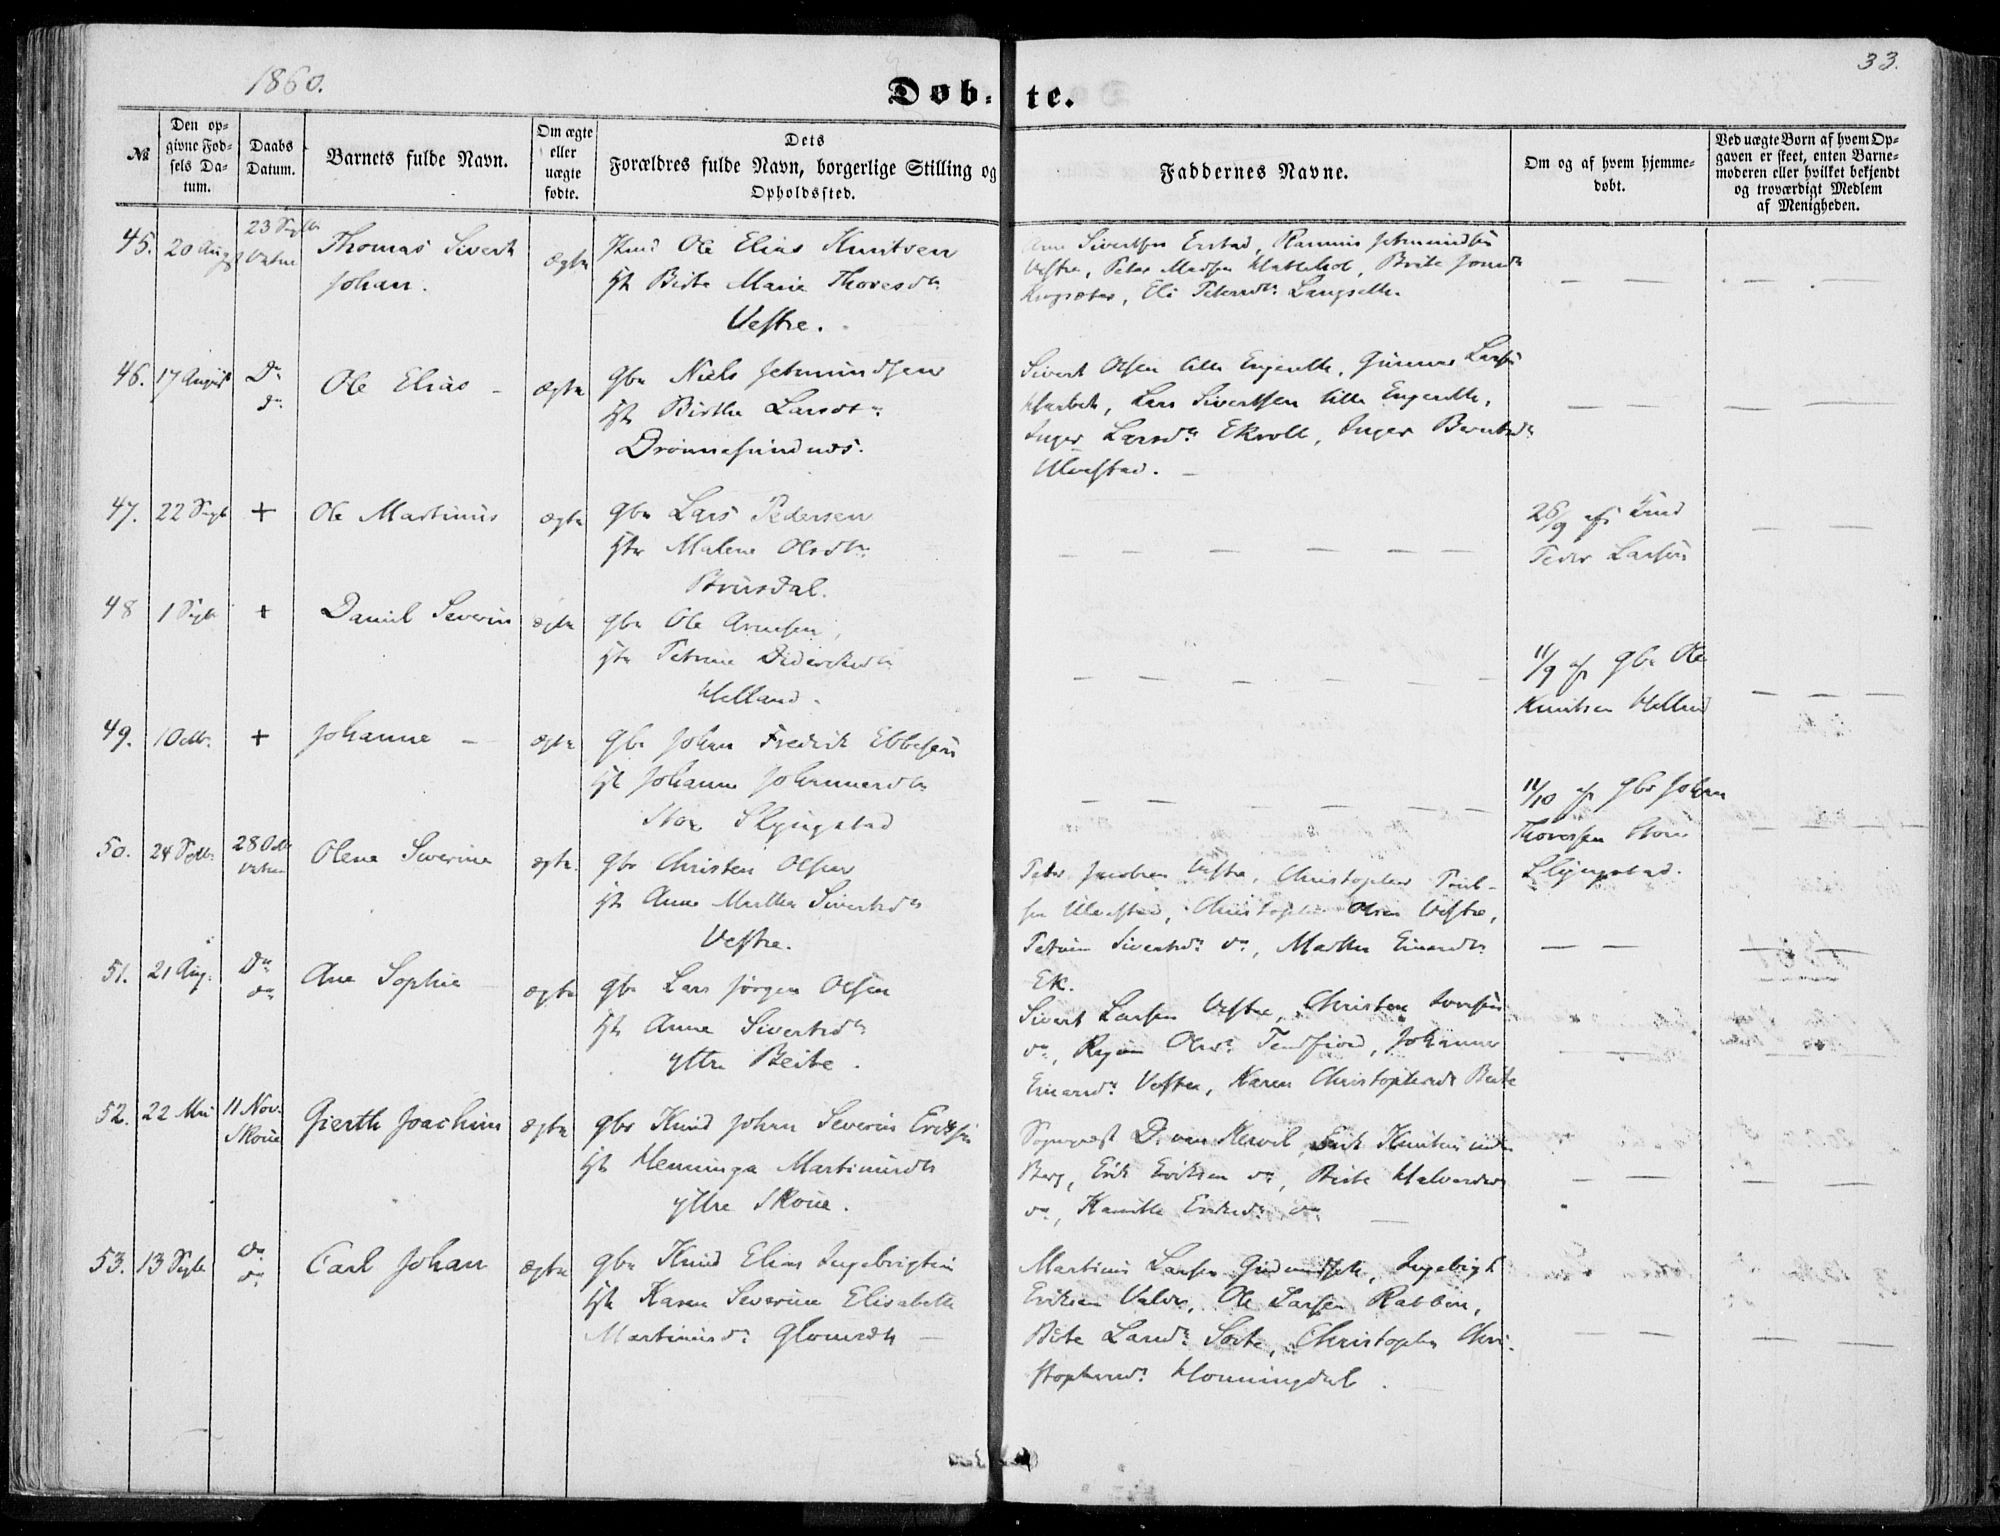 1860.
33.
Døb-te.
No
Den opgivne Fødsels Datum.
Daabs Datum.
Barnets fulde Navn.
Om ægte eller uægte fødte.
Dets Forældres fulde Navn, borgerlige Stilling og Opholdssted.
Faddernes Navne.
Om og af hvem hjemmedøbt.
Ved uægte Børn af hvem Opgaven er skeet, enten Barnemoderen eller hvilket bekjendt og troværdigt Medlem af Menigheden.
45. 20 Aug 23 Septbr Vatne Thomas Sivert Johan. ægte
Ole Elias Knutsen
Birte Marie Thoresdtr
Vestre.
Sivertsen Erstad, Rasmus Jetmundsen
Vestre, Peter Madsen, Brite
Eli Langsethe
46. 17 August Do do Ole Elias - ægte
gbr Niels Jetmundsen
Birthe Larsdtr
Drønnesundnes.
Sivert Olsen lille Engesethe, Gunnar Larsen
Lars Sivertsen lille Engesethe,
Inger Larsdr Ekroll, Inger Berntsdr
Ulvestad. -
47. 22 Septb + Ole Martinus ægte
gbr Lars Pedersen
Malene Olsdtr
Brusdal.
26/9 af Knud
Peder Larsen
48 1 Septb + Daniel Severin ægte
gbr Ole Arnesen,
Petrine
Helland.
11/9 af gbr Ole
Knutsen Helland
49. 1 Octbr. + Johanne - ægte
gbr Johan Fredrik Ebbesen
Johanne
Store Slyngstad
11/10 af gbr Johan
Thoresen Store
Slyngstad.
50. 24 Septbr. 28 Octb Vatne Olene Severine ægte
gbr Christen Olsen
Anne Marthe Sivertsdtr
Vestre.
Peder Jacobsen Vestre, Christopher Poul-
sen Ulvestad, Christopher Olsen Vestre,
Petrine Sivertsdr do, Marthe Einarsdtr
Ek.
51. 21 Aug. Do do Ane Sophie ægte
gbr Lars Jørgen Olsen
Anne Sivertsdtr
yttre Beite.
Sivert Larsen Vestre, Christen Iversen
do, Olsdr Tennfjord, Johanne
Einarsdr Vestre, Karen Christophersdr Beite
52. 22 Mai 11 Nov. Skoue Gierth Joachim ægte
gbr Knud Johan Severin Eriksen
Henninga Martinusdtr
yttre Skoue.
Sogneprest D. van Kervel, Erik Knutsen indre
Berg, Erik Eriksen do, Birte Halvorsdtr
do, Eriksdr do
53. 13 Septb do do Carl Johan ægte
gbr Knud Elias Ingebrigtsen
Karen Severine Elisabeth
Martinusdr Glomseth -
Martinus Larsen, Ingebrigt
Eriksen Valde, Ole Larsen Rabben,
Birte Larsdr Sorte, Christopher Chri-
stophersdr Honningdal.